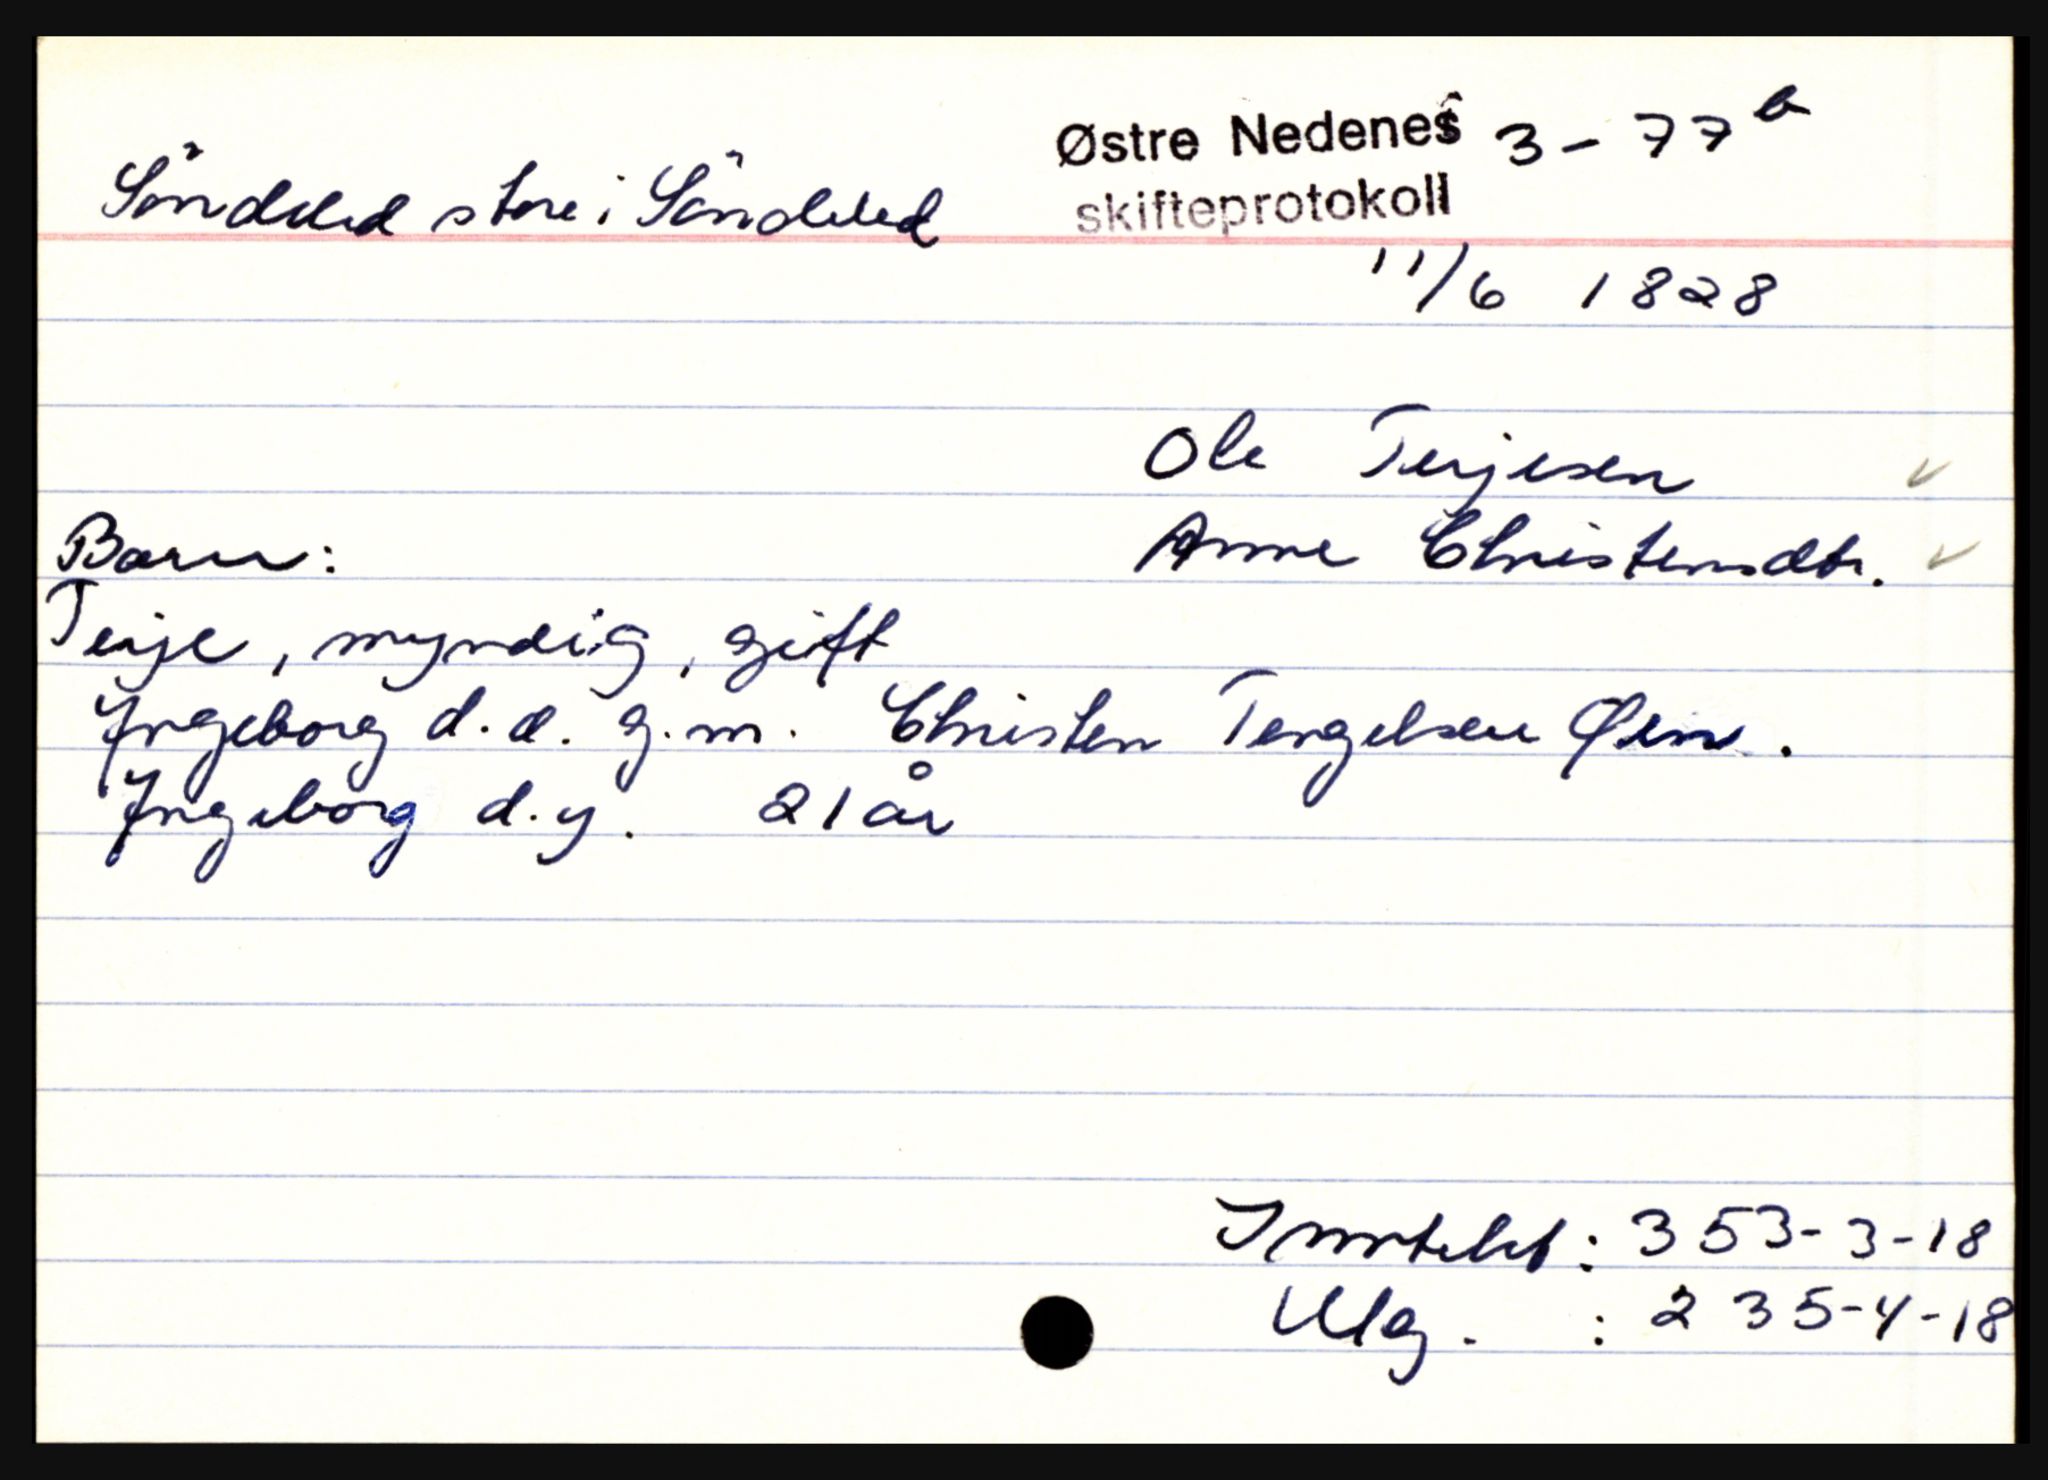 Söndeled store i Söndeled
Østre Nedenes 3 - 77 b
skifteprotokoll
11/6 1828
Ole Terjesen
Anne Christensdtr.
Barn:
Terje, myndig, gift
Ingeborg d.e. g.m. Christen Tengelsen Øen.
Ingeborg d.y. 21 år
Inntekt: 353-3-18
Utg. : 235-4-18